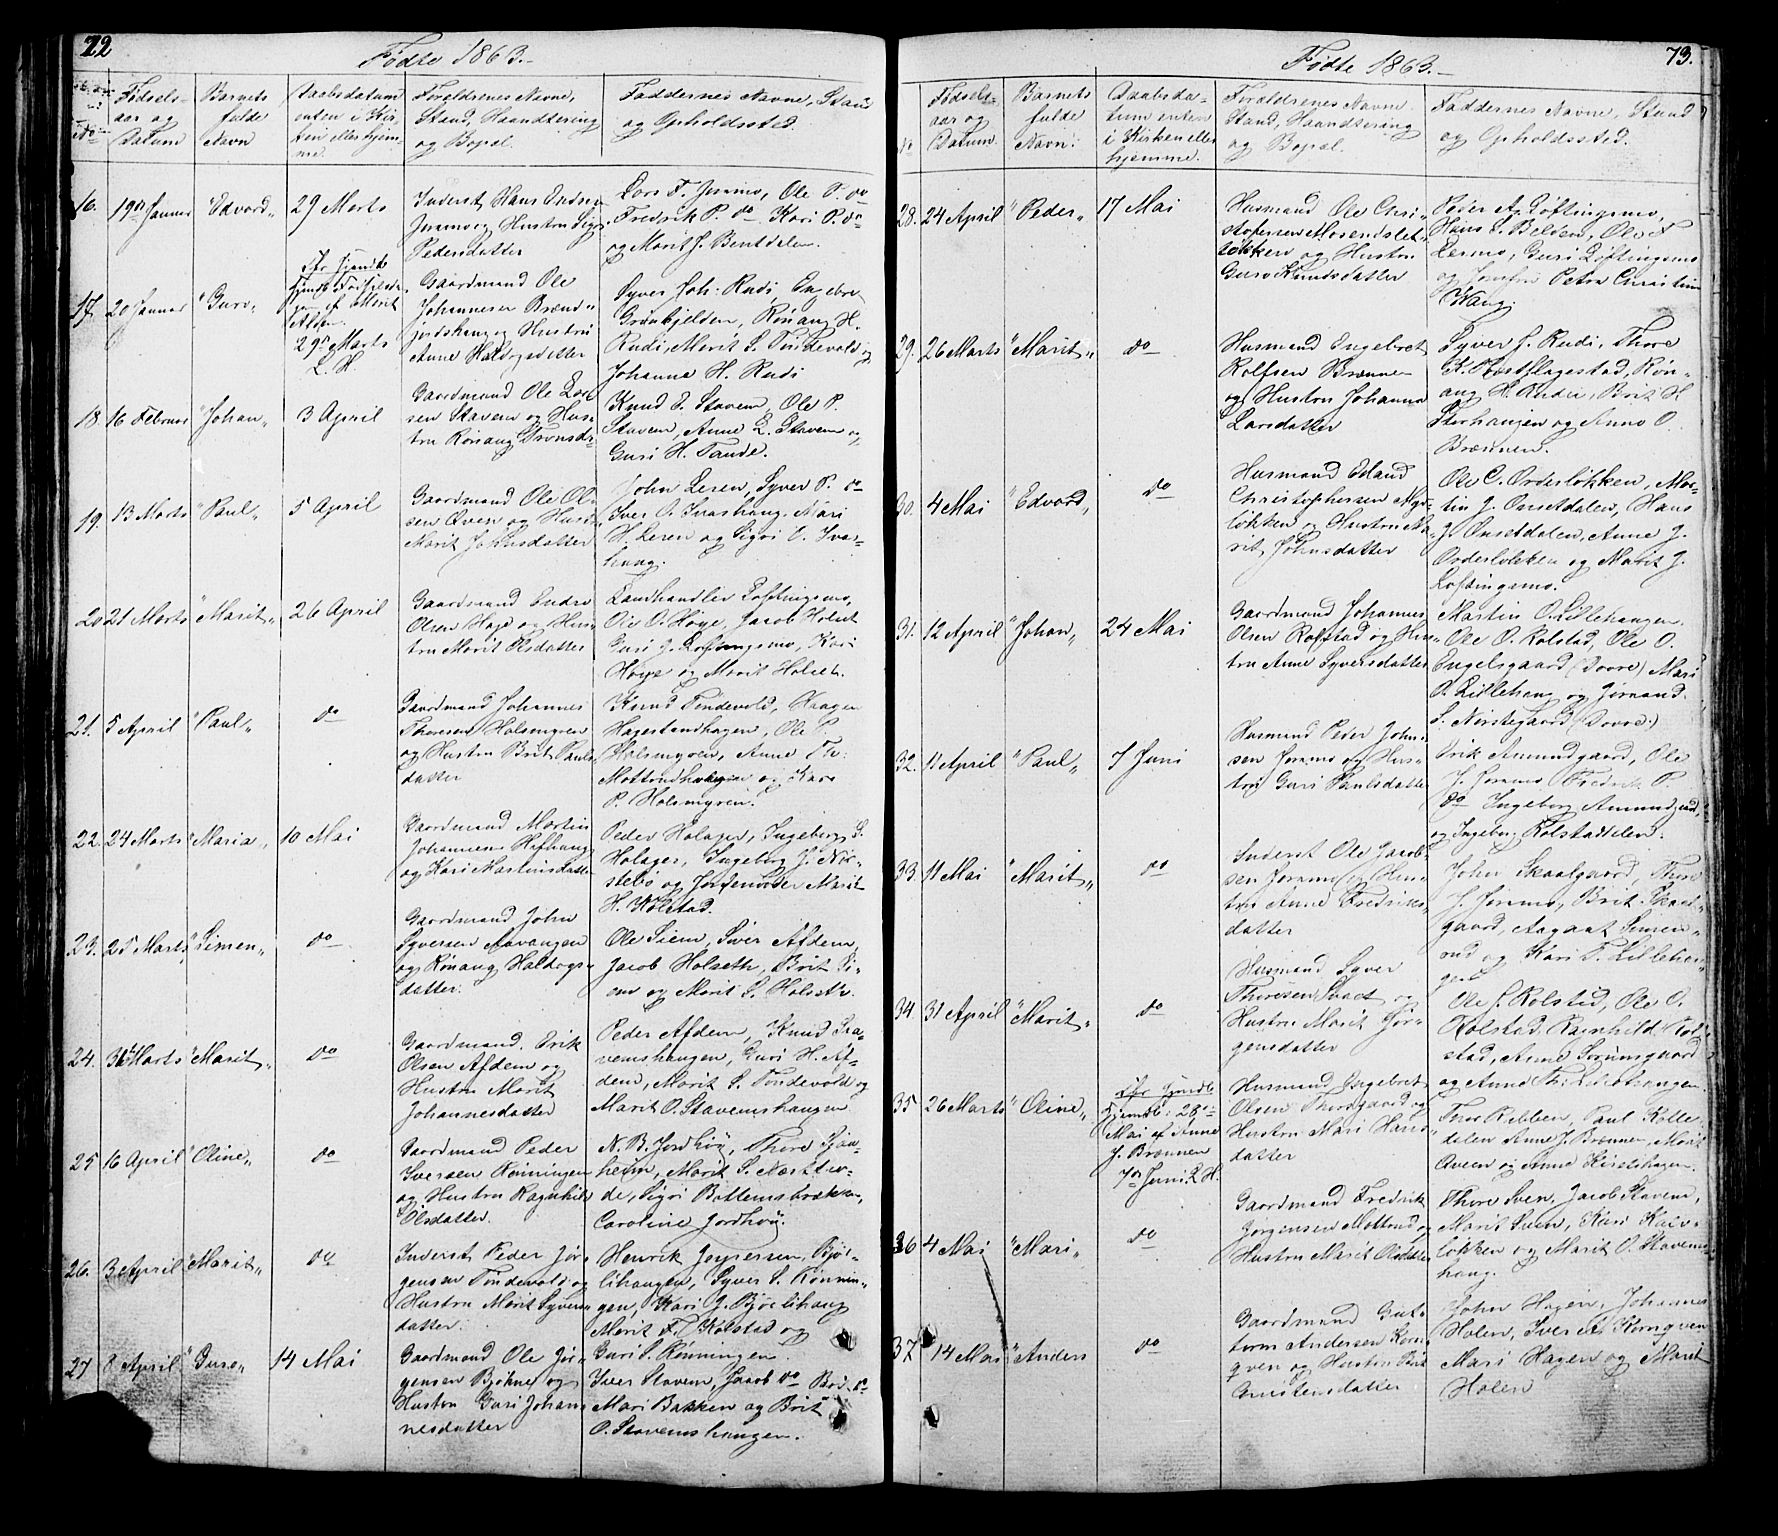 72
Fødte 1863.
No
Fødsels-
aar og
Datum
Barnets
fulde
Navn
Daabsdatum
enten i Kir-
ken eller hjem-
me.
Forældrenes Navne,
Stand, Haandtering
og Bopæl.
Faddernes Navne, Stand
og Opholdssted.
16.
19de Januar
"Edvard"
29 Marts
Inderst Hans
Jorammo og Hustru Sigri
Pedersdatter
Lars F. Jorammo, Ole P. do
Fredrik P. do Kari P. do
og Marit J. Bentdalen.
17.
20 Januar
"Guro"
af Marit
29de Marts
L. H.
Gaardmand Ole
Johannesen Brænd-
jordshaug og Hustru
Anne Haldogsdatter
Syver Joh. Rudi, Engebret
Grønhjelden, Rønaug H.
Rudi, Marit S. Tondevold og
Johanne H. Rudi
18.
16 Februar
"Johan"
3 April
Gaardmand Ole Lar-
sen Stavem og Hus-
tru Rønaug Tronsdr
Knud E. Stavem, Ole P.
Stavem, Anne L. Stavem og
Guri H. Tande.
19.
13 Marts
"Paul"
5 April
Gaardmand Ole Ol-
sen Qven og Hustr.
Marit Johnsdatter
John Leren, Syver P. do
Iver O. Ivarshaug, Mari
H. Leren og Sigri E. Ivars-
haug.
20
21 Marts
"Marit"
26 April
Gaardmand Endre
Olsen Høye og Hus-
tru Marit Olsdatter
Landhandler Loftingsmo,
Ole O. Høye, Jacob Holset
Guri J. Loftingsmo, Kari
Høye og Marit Holseth.
21.
5 April
"Paul"
do
Gaardmand Johannes
Thoresen Holsmyren
og Hustru Brit Pauls-
datter
Knud Tondevold, Haagen
Hagestandhagen, Ole P.
Holsmyren, Anne Th.
Mottondhaugen og Kari
P. Holsmyren.
22.
24 Marts
"Maria"
10 Mai
Gaardmand Martin
Johannesen Hifhaug
og Kari Martinsdatter
Peder Holager, Ingeborg S.
Holager, Ingeborg J. Nør-
stebø og Jordemoder Marit
H. Kolstad.
23.
25 Marts
"Simen"
do
Gaardmand John
Syversen Aavangen
og Rønaug Haldogs-
datter.
Ole Siem, Siver Afdem,
Jacob Holseth, Brit Si-
em og Marit S. Holseth.
24.
31 Marts
"Marit"
do
Gaardmand Erik
Olsen Afdem og
Hustru Marit
Johannesdatter
Peder Afdem, Knud Sta-
vemshaugen, Guri H. Af-
dem, Marit S. Tondevold og
Marit O. Stavemshaugen
25
16 April
"Oline"
do
Gaardmand Peder
Iversen Rønningen
og Hustru Ragnhild
Olsdatter.
N. B. Jordhøy, Thore
heim, Marit S.
de, Sigri Bottemsbrækken,
Caroline Jordhøy.
26.
3 April
"Marit"
do
Inderst Peder Jør-
gensen Tondevold og
Hustru Marit Syvers-
datter.
Henrik Jespersen Bjør-
lihaugen, Syver S. Rønnin-
gen, Kari J. Bjørlihaug
Marit F. Kolstad og
Guri S. Rønningen.
27
8 April
"Guro"
14 Mai
Gaardmand Ole Jør-
gensen Bjøkne og
Hustru Guri Johan-
nesdatter
Iver Stavem, Jacob do Brit do
Mari Bakken og Brit
O. Stavemshaugen.
73.
Fødte 1863.
No
Fødsels-
aar og
Datum.
Barnets
fulde
Navn.
Daabsda-
tum enten
i Kirken eller
hjemme.
Forældrenes Navne
Stand, Haandtering
og Bopæl.
Faddernes Navne, Stand
og Opholdssted.
28.
24 April
"Peder"
17 Mai
Husmand Ole Chri-
stofersen Mosendslet-
løkken og Hustru
Guro Knudsdatter
Peder A. Loftingsmo,
Hans S. Belden, Ole
Lesmo, Guri Loftingsmo
og Jomfru Petra Christine
Wang.
29.
26 Marts
"Marit"
do
Husmand Engebret
Rolfsen Brennen
og Hustru Johanna
Larsdatter
Syver J. Rudi, Thore
K. Nordslagestad, Røn-
aug H. Rudi, Brit H.
Storhaugen og Anne O.
Brennen.
30.
4 Mai
"Edvard"
do
Husmand Erland
Christophersen
løkken og Hustru Ma-
rit Johnsdatter
Ole C. Orderløkken, Mar-
tin J. Onsetdalen, Hans
J. Onsetdalen, Anne J.
Orderløkken og Marit J.
Loftingsmo.
31.
12 April
"Johan"
24 Mai
Gaardmand Johannes
Olsen Kolstad og Hus-
tru Anne Syversdatter
Martin O. Lillehaugen.
Ole O. Kolstad, Ole O.
Engelsgaard (Dovre) Mari
O. Lillehaug og Jørnand
S. Norstegaard (Dovre.)
32.
11 April
"Paul"
7 Juni
Husmand Peder John-
sen Jorammo og Hus-
tru Guri Paulsdatter
Erik Amundgaard, Ole
J. Jorammo, Fredrik P.
do Ingeborg Amundgaard,
og Ingeborg Kolstaddelen.
33.
11 Mai
"Marit"
do
Inderst Ole Jacob-
sen Jorammo og Hus-
tru Anne Fredriks-
datter
John Skaalgaard, Thore
J. Jorammo, Brit Skaal-
gaard, Aagaat Semen-
rud og Kari T. Lillehau-
gen
34.
31 April
"Marit"
do
Husmand Syver
Thoresen og
Hustru Marit Jør-
gensdatter
Ole S. Kolstad, Ole O.
Kolstad, Ragnhild Kol-
stad, Anne Sorumgaard
og Anne Th. Lillehaugen.
35
26 Marts
"Oline"
hjemdøbt 28de
Mai af Anne
J. Brennen
7de Juni. L. H.
Husmand Engebret
Olsen Thorsgaard og
Hustru Mari Hans-
datter
Thor Ribben, Paul Kolle-
dalen Anne J. Brennen, Marit
Qveen og Anne
36
4 Mai
"Mari"
do
Gaardmand Fredrik
Jørgensen Mottond og
Hustru Marit Olsdatter
Thore Sven, Jacob Stavem,
Marit Sven, Kari
løkken og Marit O. Stavems-
haug.
37
14 Mai
"Anders
do
Gaardmand Gut-
torm Andersen Korn-
qven og Hustru Brit
Christensdatter
John Hagen, Johannes
Holen, Iver A. Kornqven
Mari Hagen og Marit
Holen